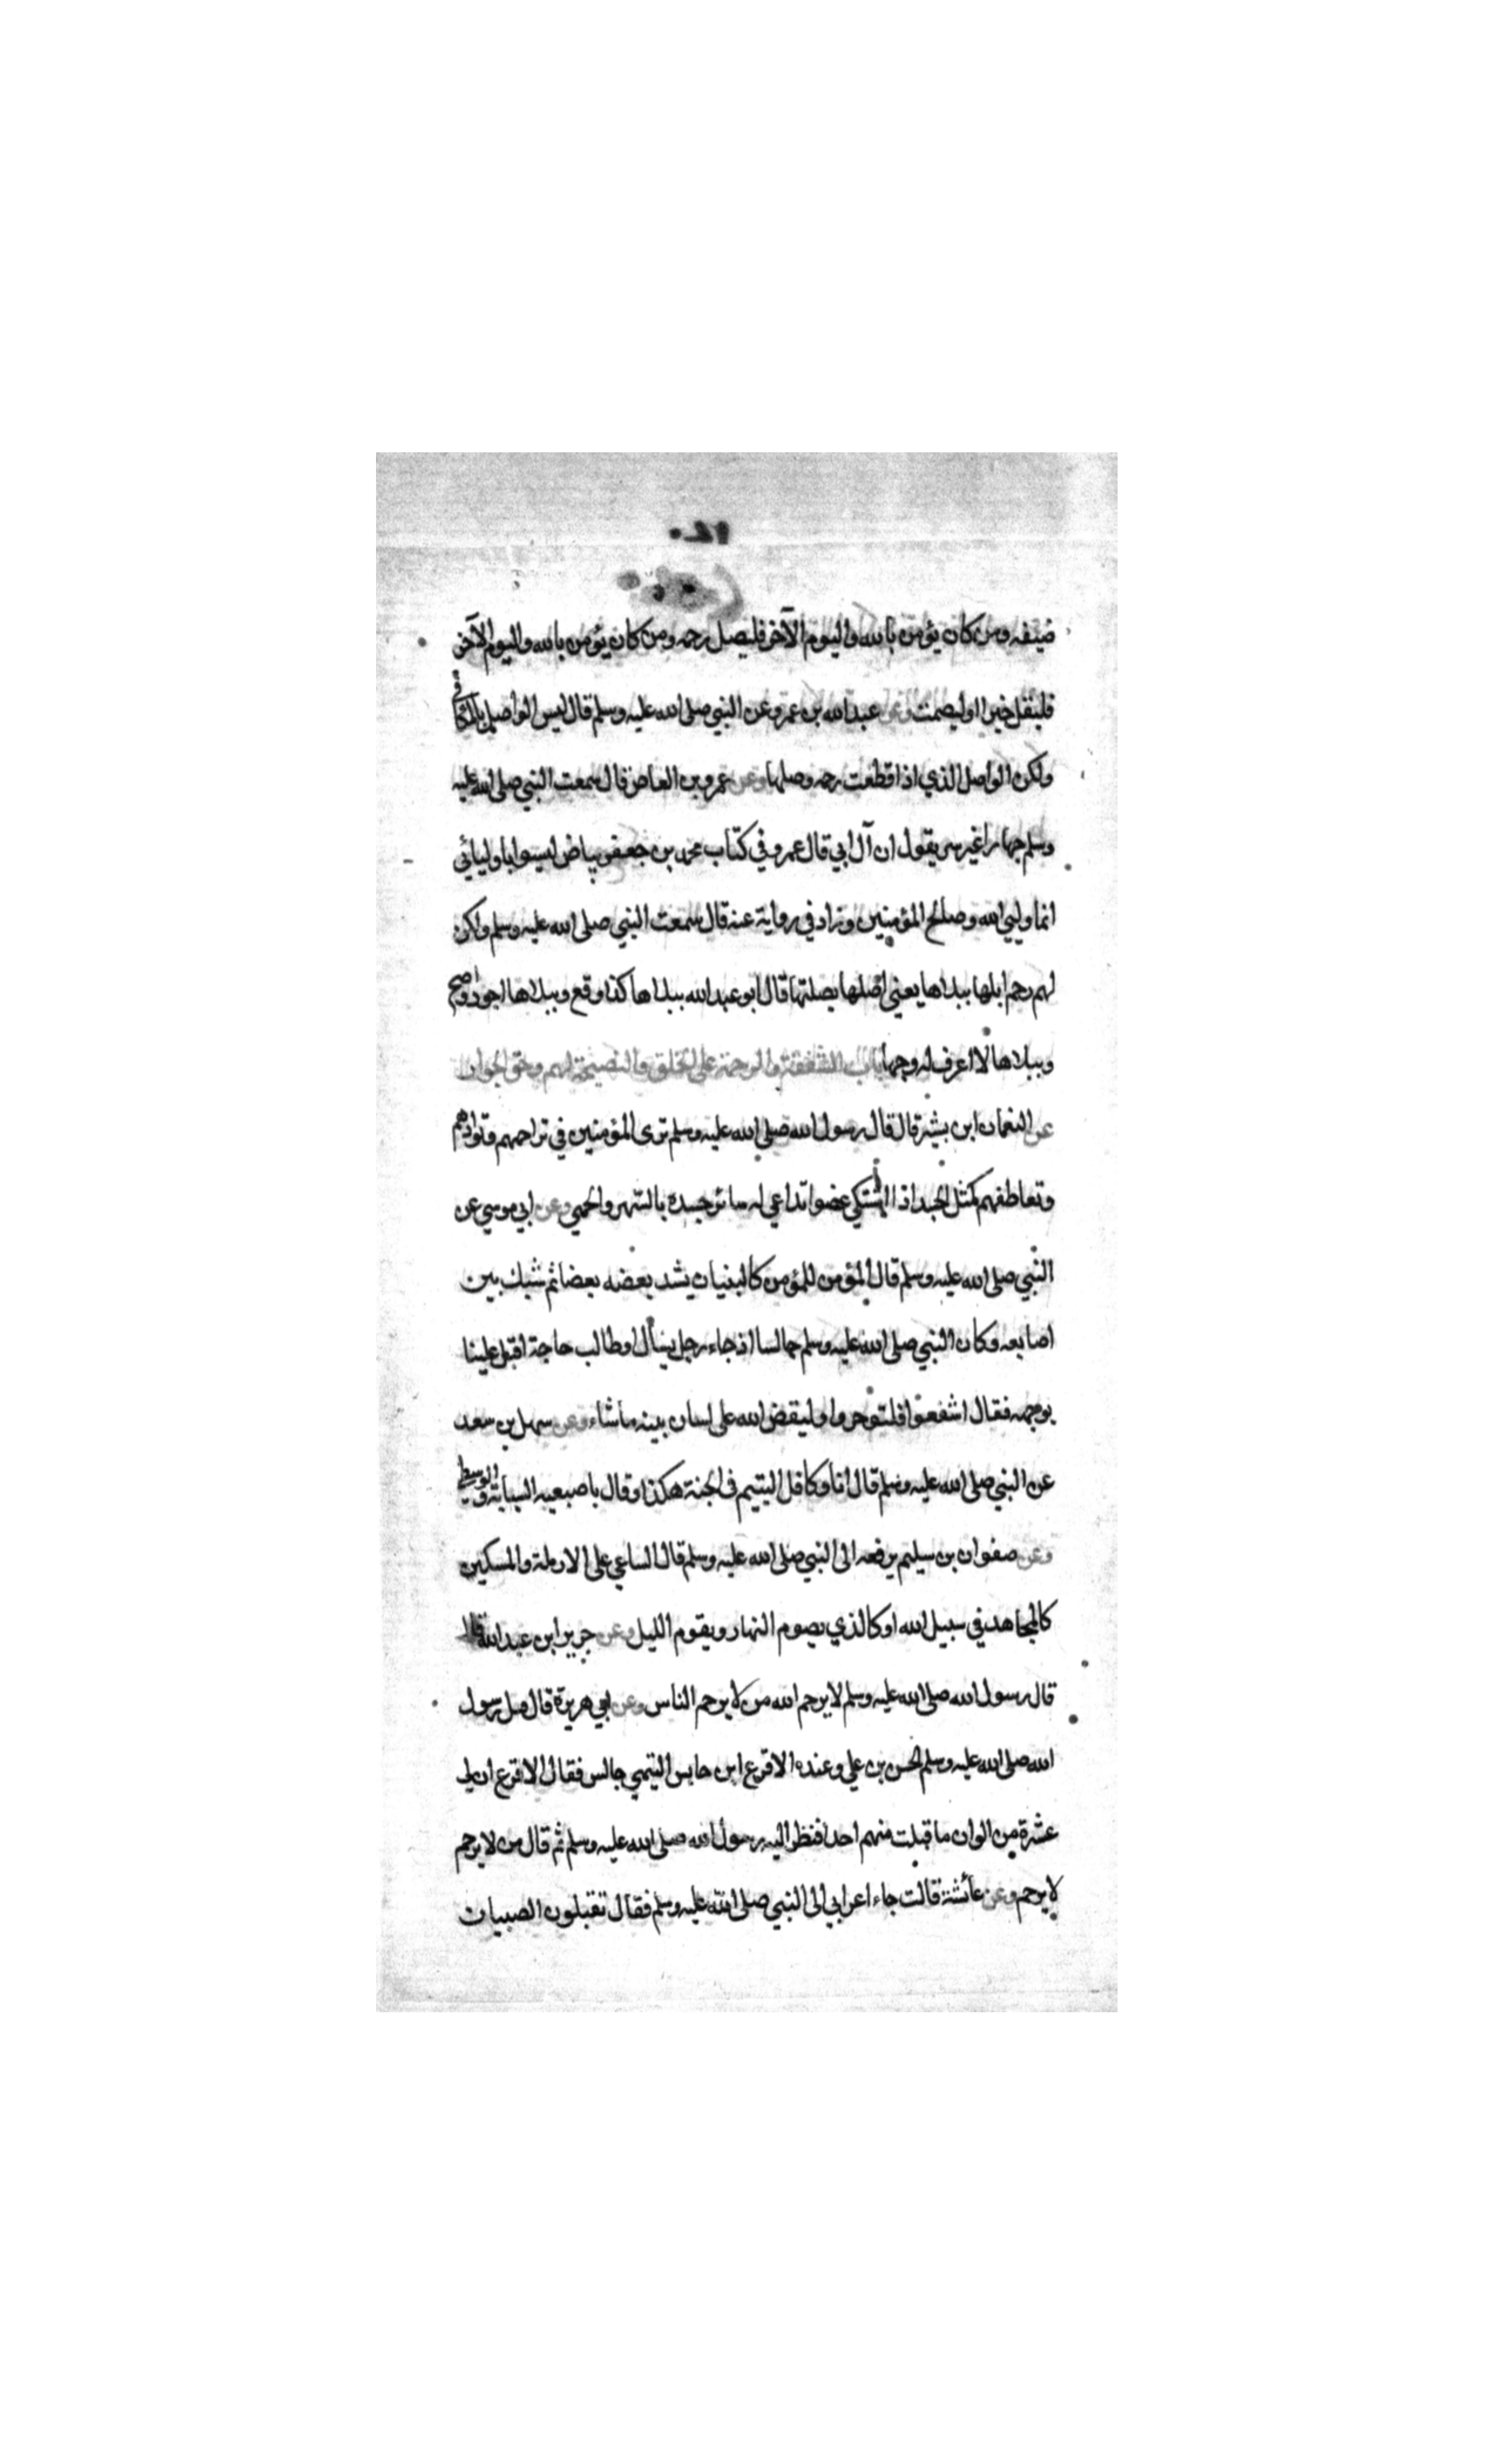 ١٤٠
ضيفه ومن كان يؤمن بالله واليوم الآخر فليصل رحمه ومن كان يؤمن بالله واليوم الآخر
فليقل خيرا اوليصمت وعن عبد الله بن عمرو عن النبي صلى الله عليه وسلم قال ليس الواصل بالمكافي
ولكن الواصل الذي اذا قطعت رحمه وصلها وعن عمرو بن العاص قال سمعت النبي صلى الله عليه
وسلم جهارا غير سر يقول ان آل ابي قال عمرو في كتاب محمد بن جعفر بياض ليسوا باوليائي
انما وليي الله وصلح المؤمنين وزاد في رواية عنه قال سمعت النبي صلى الله عليه وسلم ولكن
لهم رحم ابلها ببلاها يعني اصلها بصلتها قال ابو عبد الله ببلاها كذا وقع وببلاها اجود واصح
وببلاها لا اعرف له وجها باب الشفقة والرحمة على الخلق والنصيحة لهم وحق الجوار
عن النعمان ابن بشير قال قال رسول الله صلى الله عليه وسلم ترى المؤمنين في تراحمهم وتوادهم
وتعاطفهم كمثل الجسد اذا اشتكي عضوا تداعي له سائر جسده بالسهر والحمي وعن ابي موسي عن
النبي صلى الله عليه وسلم قال المؤمن للمؤمن كالبنيان يشد بعضه بعضا ثم شبك بين
اصابعه وكان النبي صلى الله عليه وسلم جالسا اذ جاء رجل يسأل او طالب حاجة اقبل علينا
بوجهه فقال اشفعوا فلتوجروا وليقض الله على لسان نبيه ما شاء وعن سهل بن سعد
عن النبي صلى الله عليه وسلم قال انا وكافل اليتيم في الجنة هكذا وقال باصبعيه السبابة والوسطي
وعن صفوان بن سليم يرفعه الى النبي صلى الله عليه وسلم قال الساعي على الارملة والمسكين
كالمجاهد في سبيل الله او كالذي يصوم النهار ويقوم الليل وعن جرير ابن عبد الله قال
قال رسول الله صلى الله عليه وسلم لا يرحم الله من لا يرحم الناس وعن ابي هريرة قال قبل رسول
الله صلى الله عليه وسلم الحسن بن علي وعنده الاقرع ابن حابس التيمي جالس فقال الاقرع ان لي
عشرة من الولد ما قبلت منهم احدا فنظر اليه رسول الله صلى الله عليه وسلم ثم قال من لا يرحم
لا يرحم وعن عائشة قالت جاء اعرابي الى النبي صلى الله عليه وسلم فقال تقبلون الصبيان